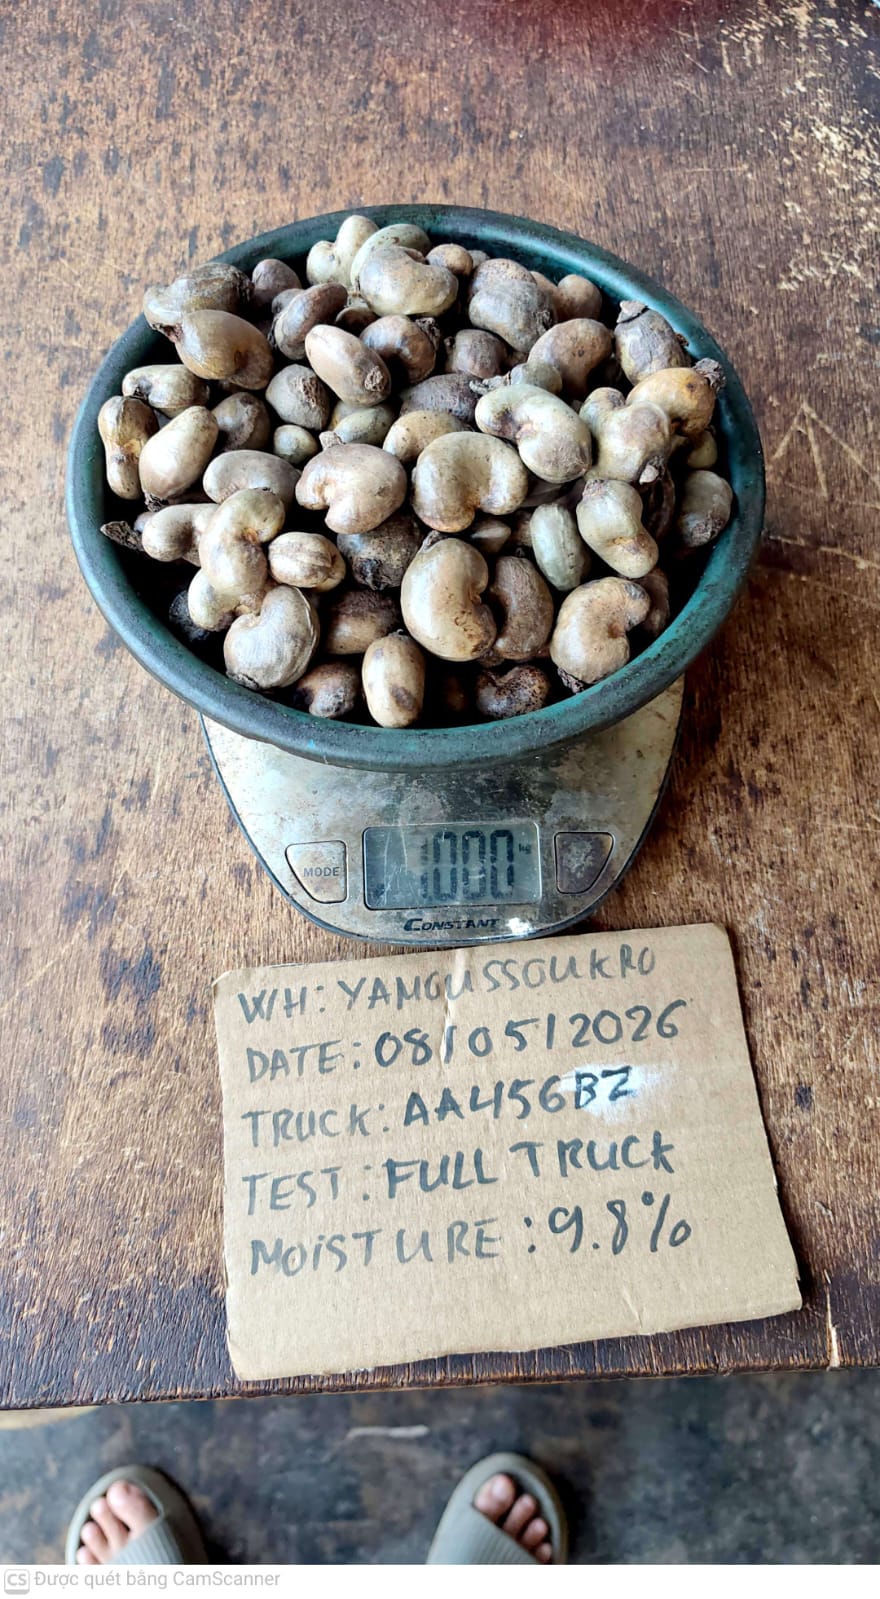 MODE
1.000 kg
CONSTANT
WH: YAMOUSSOUKRO
DATE: 08/05/2026
TRUCK: AA456BZ
TEST: FULL TRUCK
MOISTURE: 9.8%
CS Được quét bằng CamScanner